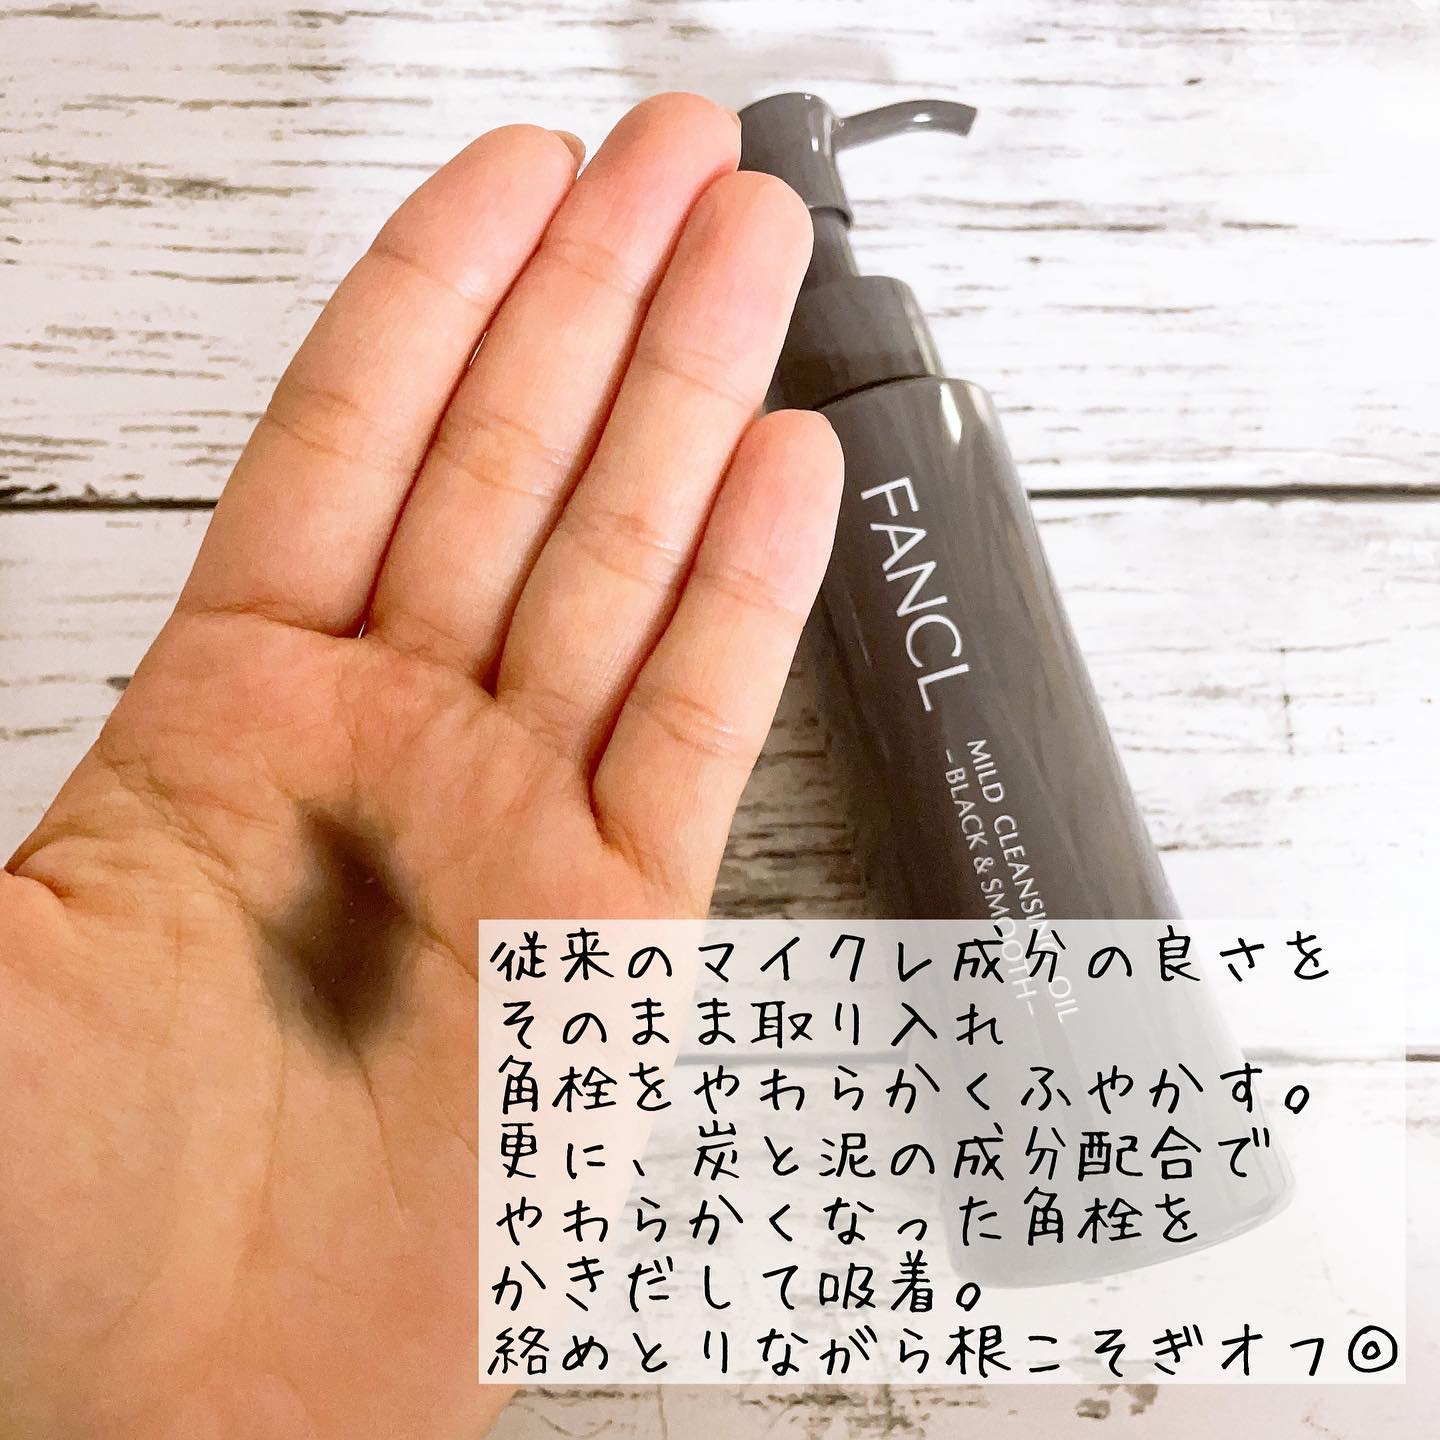 FANCL
MILD CLEANSING OIL
-BLACK & SMOOTH-
従来のマイクレ成分の良さを
そのまま取り入れ
角栓をやわらかくふやかす。
更に、炭と泥の成分配合で
やわらかくなった角栓を
かきだして吸着。
絡めとりながら根こそぎオフ◎